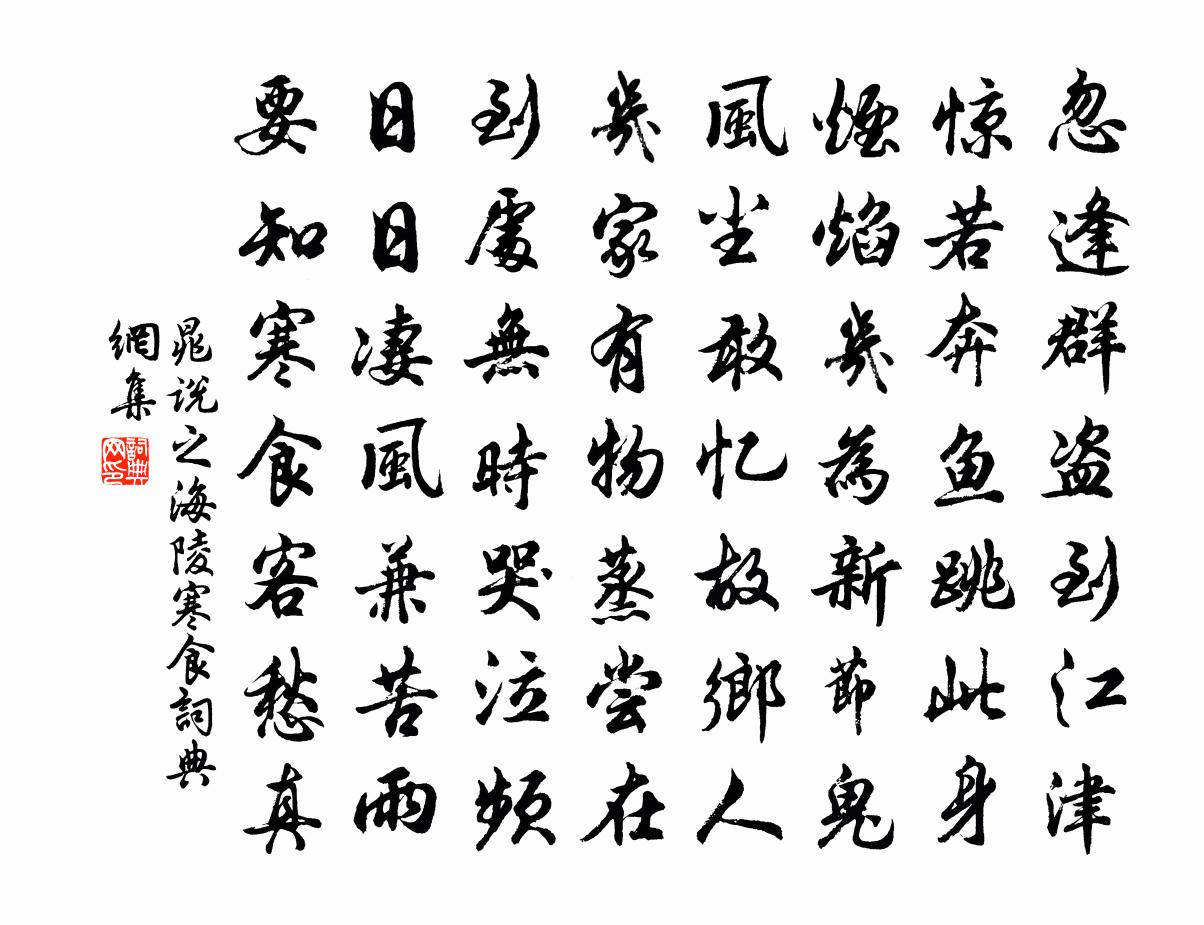 忽逢群盗到江津
惊若奔鱼跳此身
煙焰幾為新節鬼
風尘敢忆故鄉人
幾家有物蒸尝在
到處無時哭泣頻
日日凄風兼苦雨
要知寒食客愁真
晁説之海陵寒食詞典
網集
詞典
网印